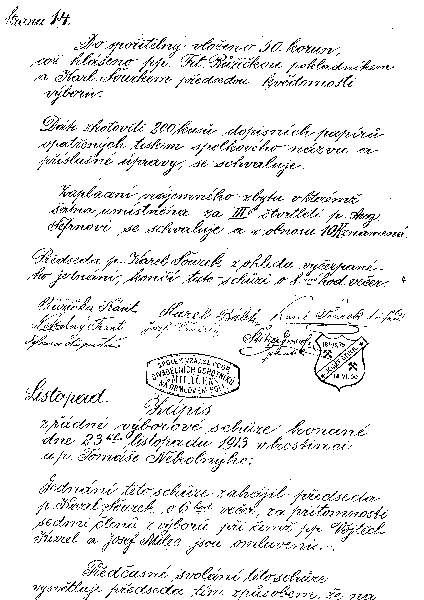 Strana 14.
Do spořitelny vloženo 50 korun,
což hlášeno pp. Fr. Růžičkou pokladníkem
a Karl. Součkem předsedou k vědomosti
výboru.
Dáti zhotoviti 200 kusů dopisních papírů
opatřených tiskem spolkového názvu a
příslušné úpravy, se schvaluje.
Zaplacení nájemného z bytu v kterémž
umístněna za III čtvrtletí p. Aug.
se schvaluje a v obnosu 10 K
Předseda p. Karel Souček z ohledu vyčerpané-
ho jednání, končí tuto schůzi o 8 hod. večer.
Růžička
Karel Karel Souček
Nekolný
SPOLEK
DIVADELNÍCH OCHOTNÍKŮ
Listopad. Zápis
z řádné výborové schůze konané
dne 23ho listopadu 1913 v hostinci
u p. Tomáše Nekolnýho:
Jednání této schůze zahájil předseda
p. Karel Souček, o 6 hod. večer, za přítomnosti
sedmi členů z výboru při čemž pp. Vojtěch
Karel a Josef Milec jsou omluveni.
Předčasné svolání této schůze
vysvětluje předseda tím způsobem, že na